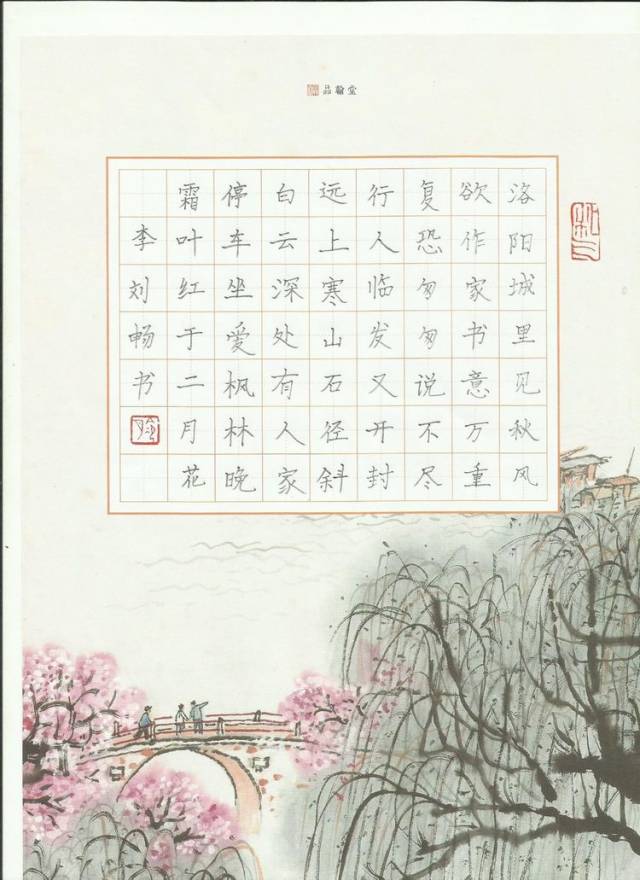 品翰堂
洛阳城里见秋风
欲作家书意万重
复恐匆匆说不尽
行人临发又开封
远上寒山石径斜
白云深处有人家
停车坐爱枫林晚
霜叶红于二月花
李刘畅书